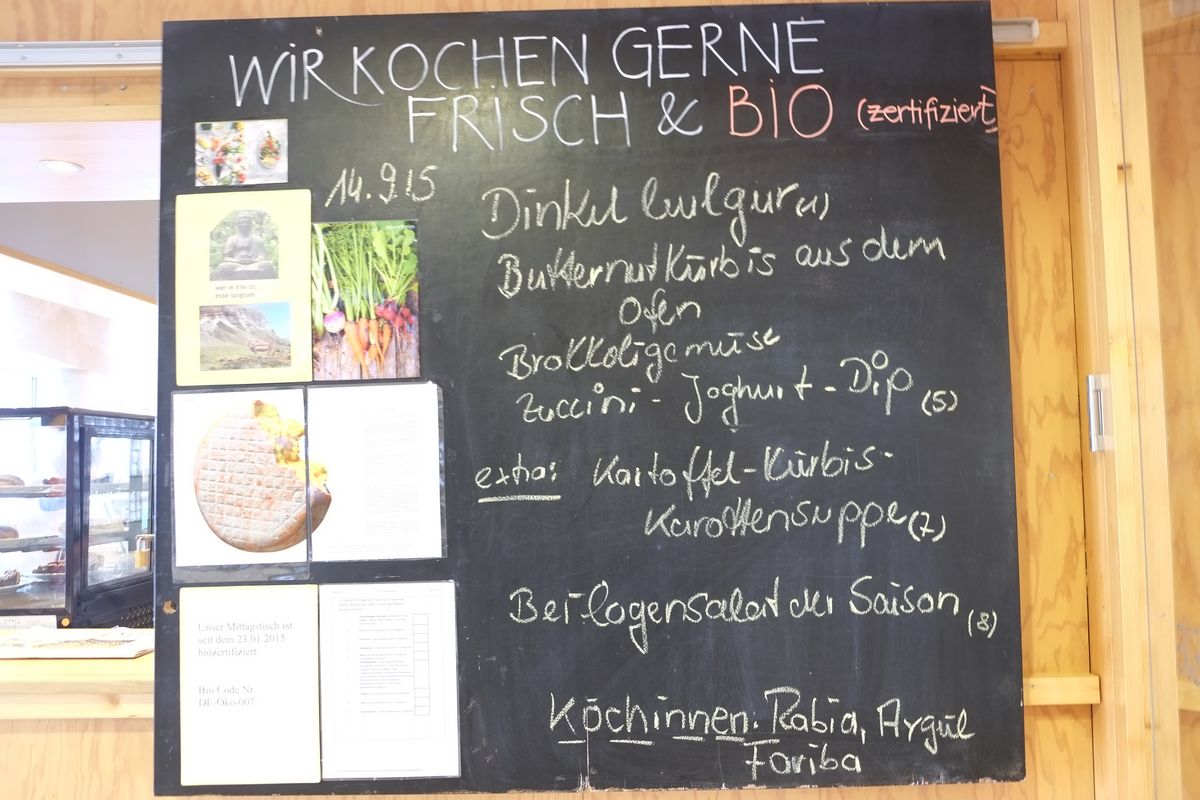 WIR KOCHEN GERNE
FRISCH & BIO (zertifiziert)
14.9.15
Dinkel bulgur (1)
Butternut Kürbis aus dem
Ofen
Brokkoligemüse
Zuccini - Joghurt - Dip (5)
extra: Kartoffel-Kürbis-
Karottensuppe (7)
Beilagensalat der Saison (8)
Köchinnen: Rabia, Aygül
Fariba
wer in Eile ist,
esse langsam
Unser Mittagstisch ist
seit dem 23.01.2015
biozertifiziert
Bio Code Nr.
DE-Öko-007